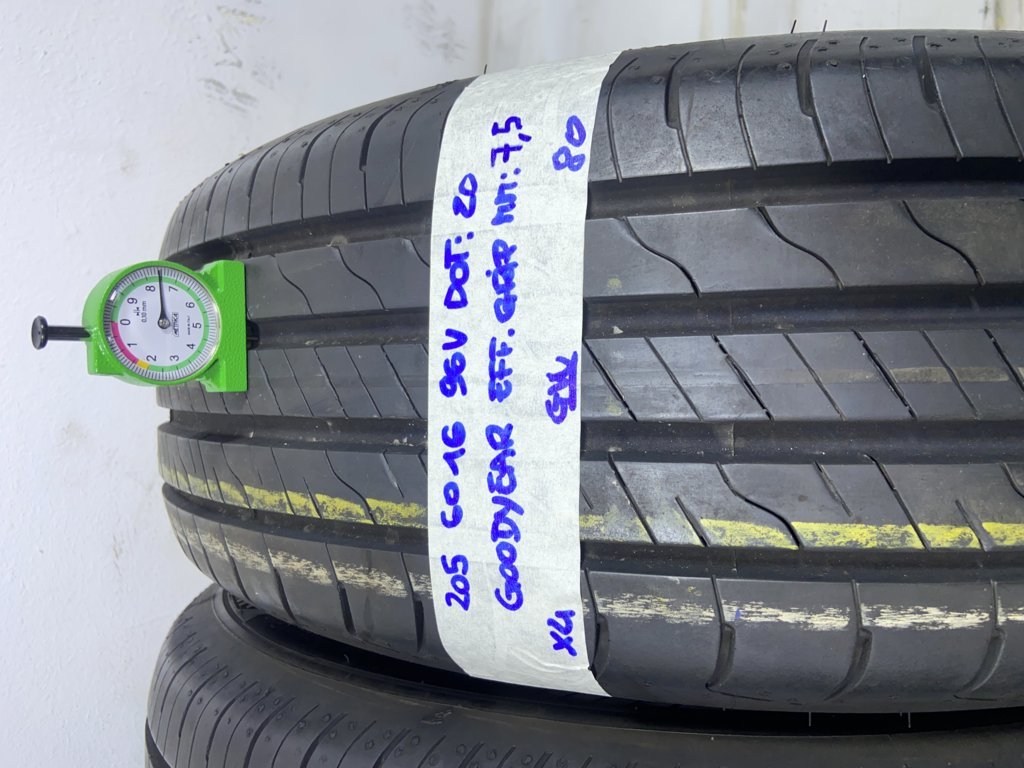 205 60 16 96V DOT: 20
GOODYEAR EFF. GRIP MM: 7,5
X4 80
0,10 mm
0
1
2
3
4
5
6
7
8
9